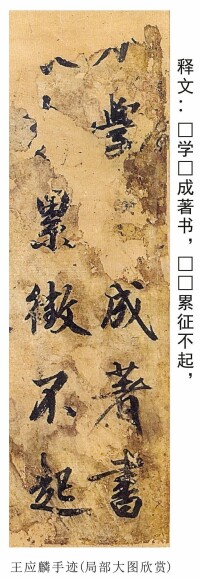 学
成著书
累徵不起
释文：□学□成著书，□□累征不起，
王应麟手迹(局部大图欣赏)